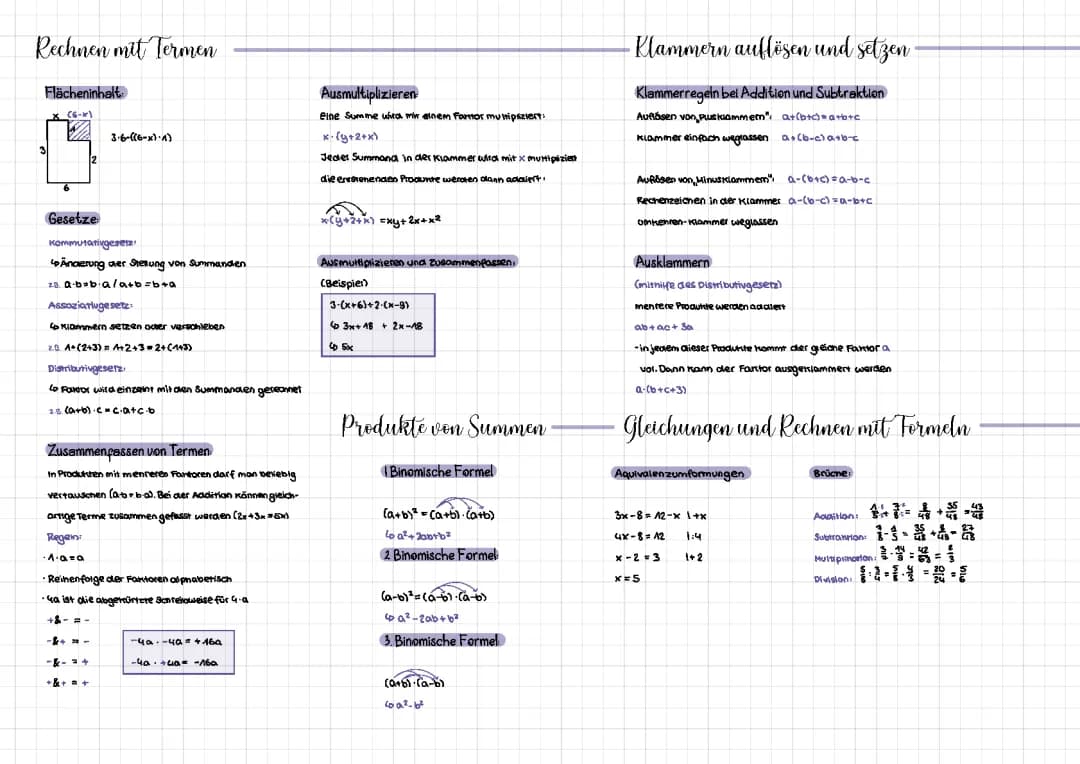 Rechnen mit Termen
Flächeninhalt:
x (6-x)
1
3
2
6
3·6-((6-x)·1)
Gesetze:
Kommutativgesetz:
↳Änderung der Stellung von Summanden
z.B. a·b=b·a / a+b=b+a
Assoziativgesetz:
↳ Klammern setzen oder verschieben
z.B. 1+(2+3) = 1+2+3 = 2+(1+3)
Distributivgesetz:
↳ Faktor wird einzeln mit den Summanden gerechnet
z.B. (a+b)·c = c·a+c·b
Zusammenfassen von Termen
In Produkten mit mehreren Faktoren darf man beliebig
vertauschen (a·b=b·a). Bei der Addition können gleich-
artige Terme zusammen gefasst werden (2x+3x=5x)
Regeln:
·1·a=a
· Reihenfolge der Faktoren alphabetisch
· 4a ist die abgekürtzte Schreibweise für 4·a
+&- = -
-&+ = -
-&- = +
+&+ = +
-4a·-4a = +16a
-4a·+4a = -16a
Ausmultiplizieren
Eine Summe wird mir einem Faktor multipliziert:
x·(y+2+x)
Jeder Summand in der Klammer wird mit x multipliziert
die entstehenden Produkte werden dann addiert:
x·(y+2+x) =xy+2x+x²
Ausmultiplizieren und zusammenfassen:
(Beispiel)
3·(x+6)+2·(x-9)
↳ 3x+18 + 2x-18
↳ 5x
Klammern auflösen und setzen
Klammerregeln bei Addition und Subtraktion
Auflösen von „Plusklammern": a+(b+c)=a+b+c
Klammer einfach weglassen a+(b-c) a+b-c
Auflösen von „Minusklammern": a-(b+c)=a-b-c
Rechenzeichen in der Klammer a-(b-c)=a-b+c
umkehren-Klammer weglassen
Ausklammern
(mithilfe des Distributivgesetz)
mehrere Produkte werden addiert
ab+ac+3a
-in jedem dieser Produkte kommt der gleiche Faktor a
vor. Dann kann der Faktor ausgeklammert werden
a·(b+c+3)
Produkte von Summen
1 Binomische Formel
(a+b)² = (a+b)·(a+b)
↳ a²+2ab+b²
2 Binomische Formel
(a-b)²=(a-b)·(a-b)
↳ a²-2ab+b²
3. Binomische Formel
(a+b)·(a-b)
↳ a²-b²
Gleichungen und Rechnen mit Formeln
Äquivalenzumformungen
3x-8=12-x |+x
4x-8=12 |:4
x-2=3 |+2
x=5
Brüche:
Addition:
Subtraktion:
Multiplikation:
Division: